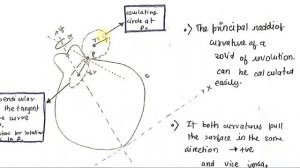 osculating
circle at
P.
r₁
P
r₂
the tangent
curve
for rotation
∴) The principal raddi of
curvature of a
solid of revolution
can be calculated
easily.
x
∴) If both curvatures pull
the surface in the same
direction → +ve
and vice versa.